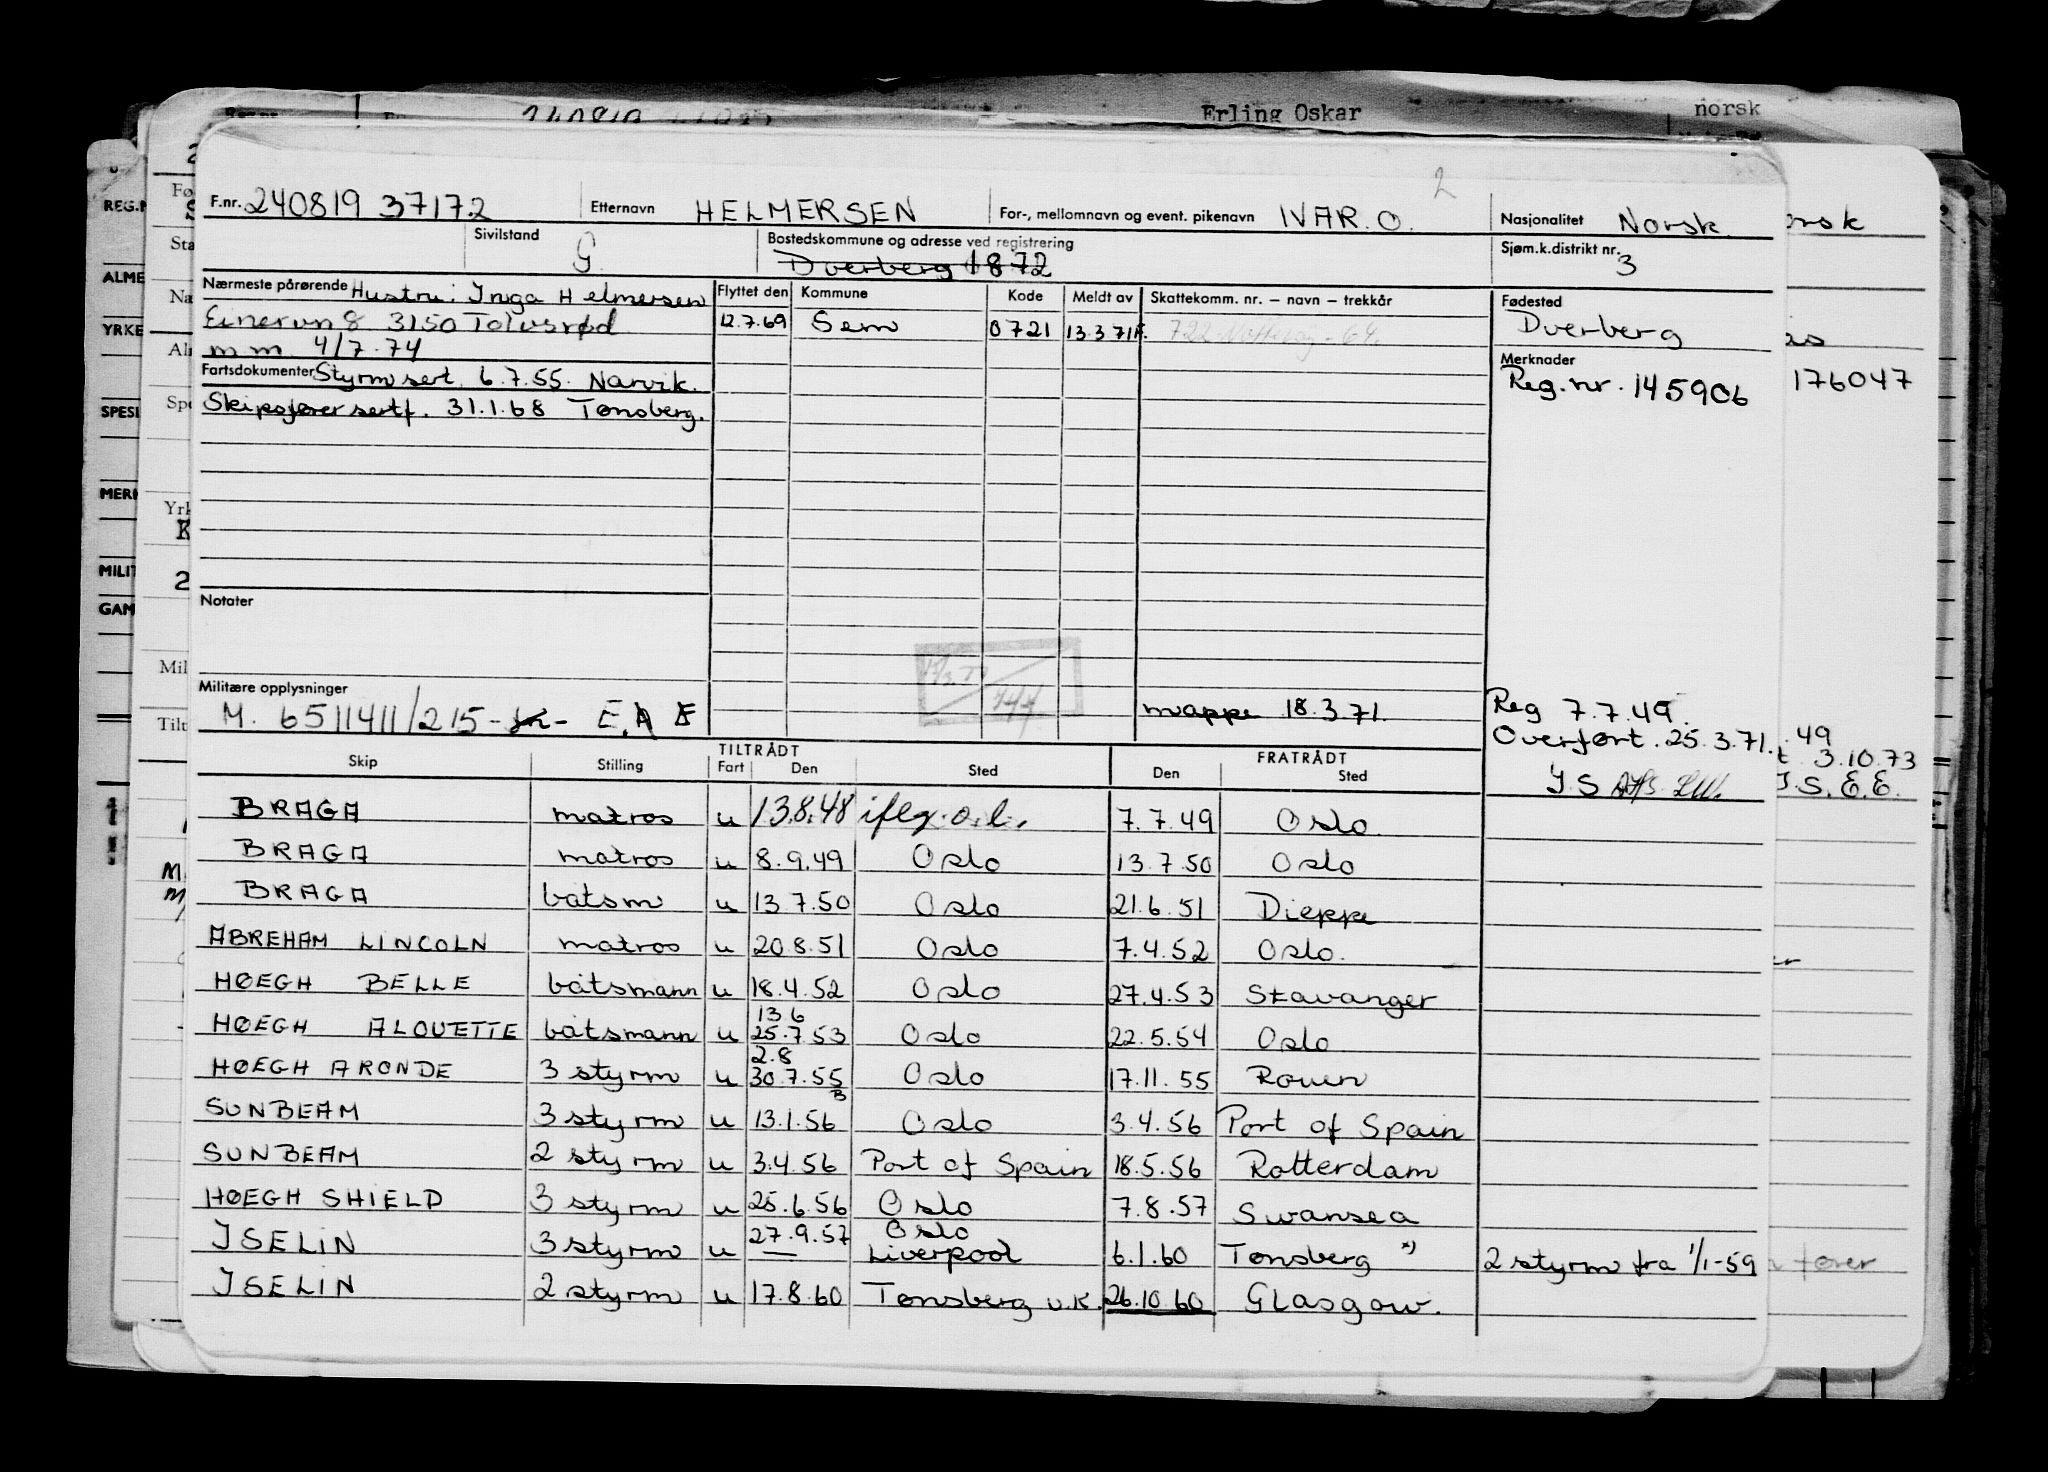 Erling Oskar norsk
2
F.nr. 240819 37172 Etternavn HELMERSEN For-, mellomnavn og event. pikenavn IVAR. O. Nasjonalitet Norsk
Sivilstand G Bostedskommune og adresse ved registrering Dverberg 1872 Sjøm.k.distrikt nr. 3
Nærmeste pårørende Hustru: Inga Helmersen Flyttet den Kommune Kode Meldt av Skattekomm. nr. – navn – trekkår Fødested
Einervn 8 3150 Tolvsrød 12.7.69 Sem 0721 13.3.71 722 Nøtterøy - 64. Dverberg
m.m. 4/7.74 Merknader
Fartsdokumenter Styrm sert. 6.7.55. Narvik. Reg. nr. 145906 176047
Skipsfører sertf. 31.1.68 Tønsberg.
Notater
Militære opplysninger
M. 6511411/215 mappe 18.3.71. Reg 7.7.49.
Overført. 25.3.71. 49
3.10.73
J.S J.S. E.E.
TILTRÅDT FRATRÅDT
Skip Stilling Fart Den Sted Den Sted
BRAGA matros u 13.8.48 iflg. o.l. 7.7.49 Oslo
BRAGA matros u 8.9.49 Oslo 13.7.50 Oslo
BRAGA båtsm u 13.7.50 Oslo 21.6.51 Dieppe
ABREHAM LINCOLN matros u 20.8.51 Oslo 7.4.52 Oslo.
HØEGH BELLE båtsmann u 18.4.52 Oslo 27.4.53 Stavanger
13.6
HØEGH ALOUETTE båtsmann u 25.7.53 Oslo 22.5.54 Oslo
2.8
HØEGH ARONDE 3 styrm u 30.7.55 Oslo 17.11.55 Rouen
SUNBEAM 3 styrm u 13.1.56 Oslo 3.4.56 Port of Spain
SUNBEAM 2 styrm u 3.4.56 Port of Spain 18.5.56 Rotterdam
HØEGH SHIELD 3 styrm u 25.6.56 Oslo 7.8.57 Swansea
27.9.57 Oslo
ISELIN 3 styrm u — Liverpool 6.1.60 Tønsberg *) 2 styrm fra 1/1-59
ISELIN 2 styrm u 17.8.60 Tønsberg u.k. 26.10.60 Glasgow.